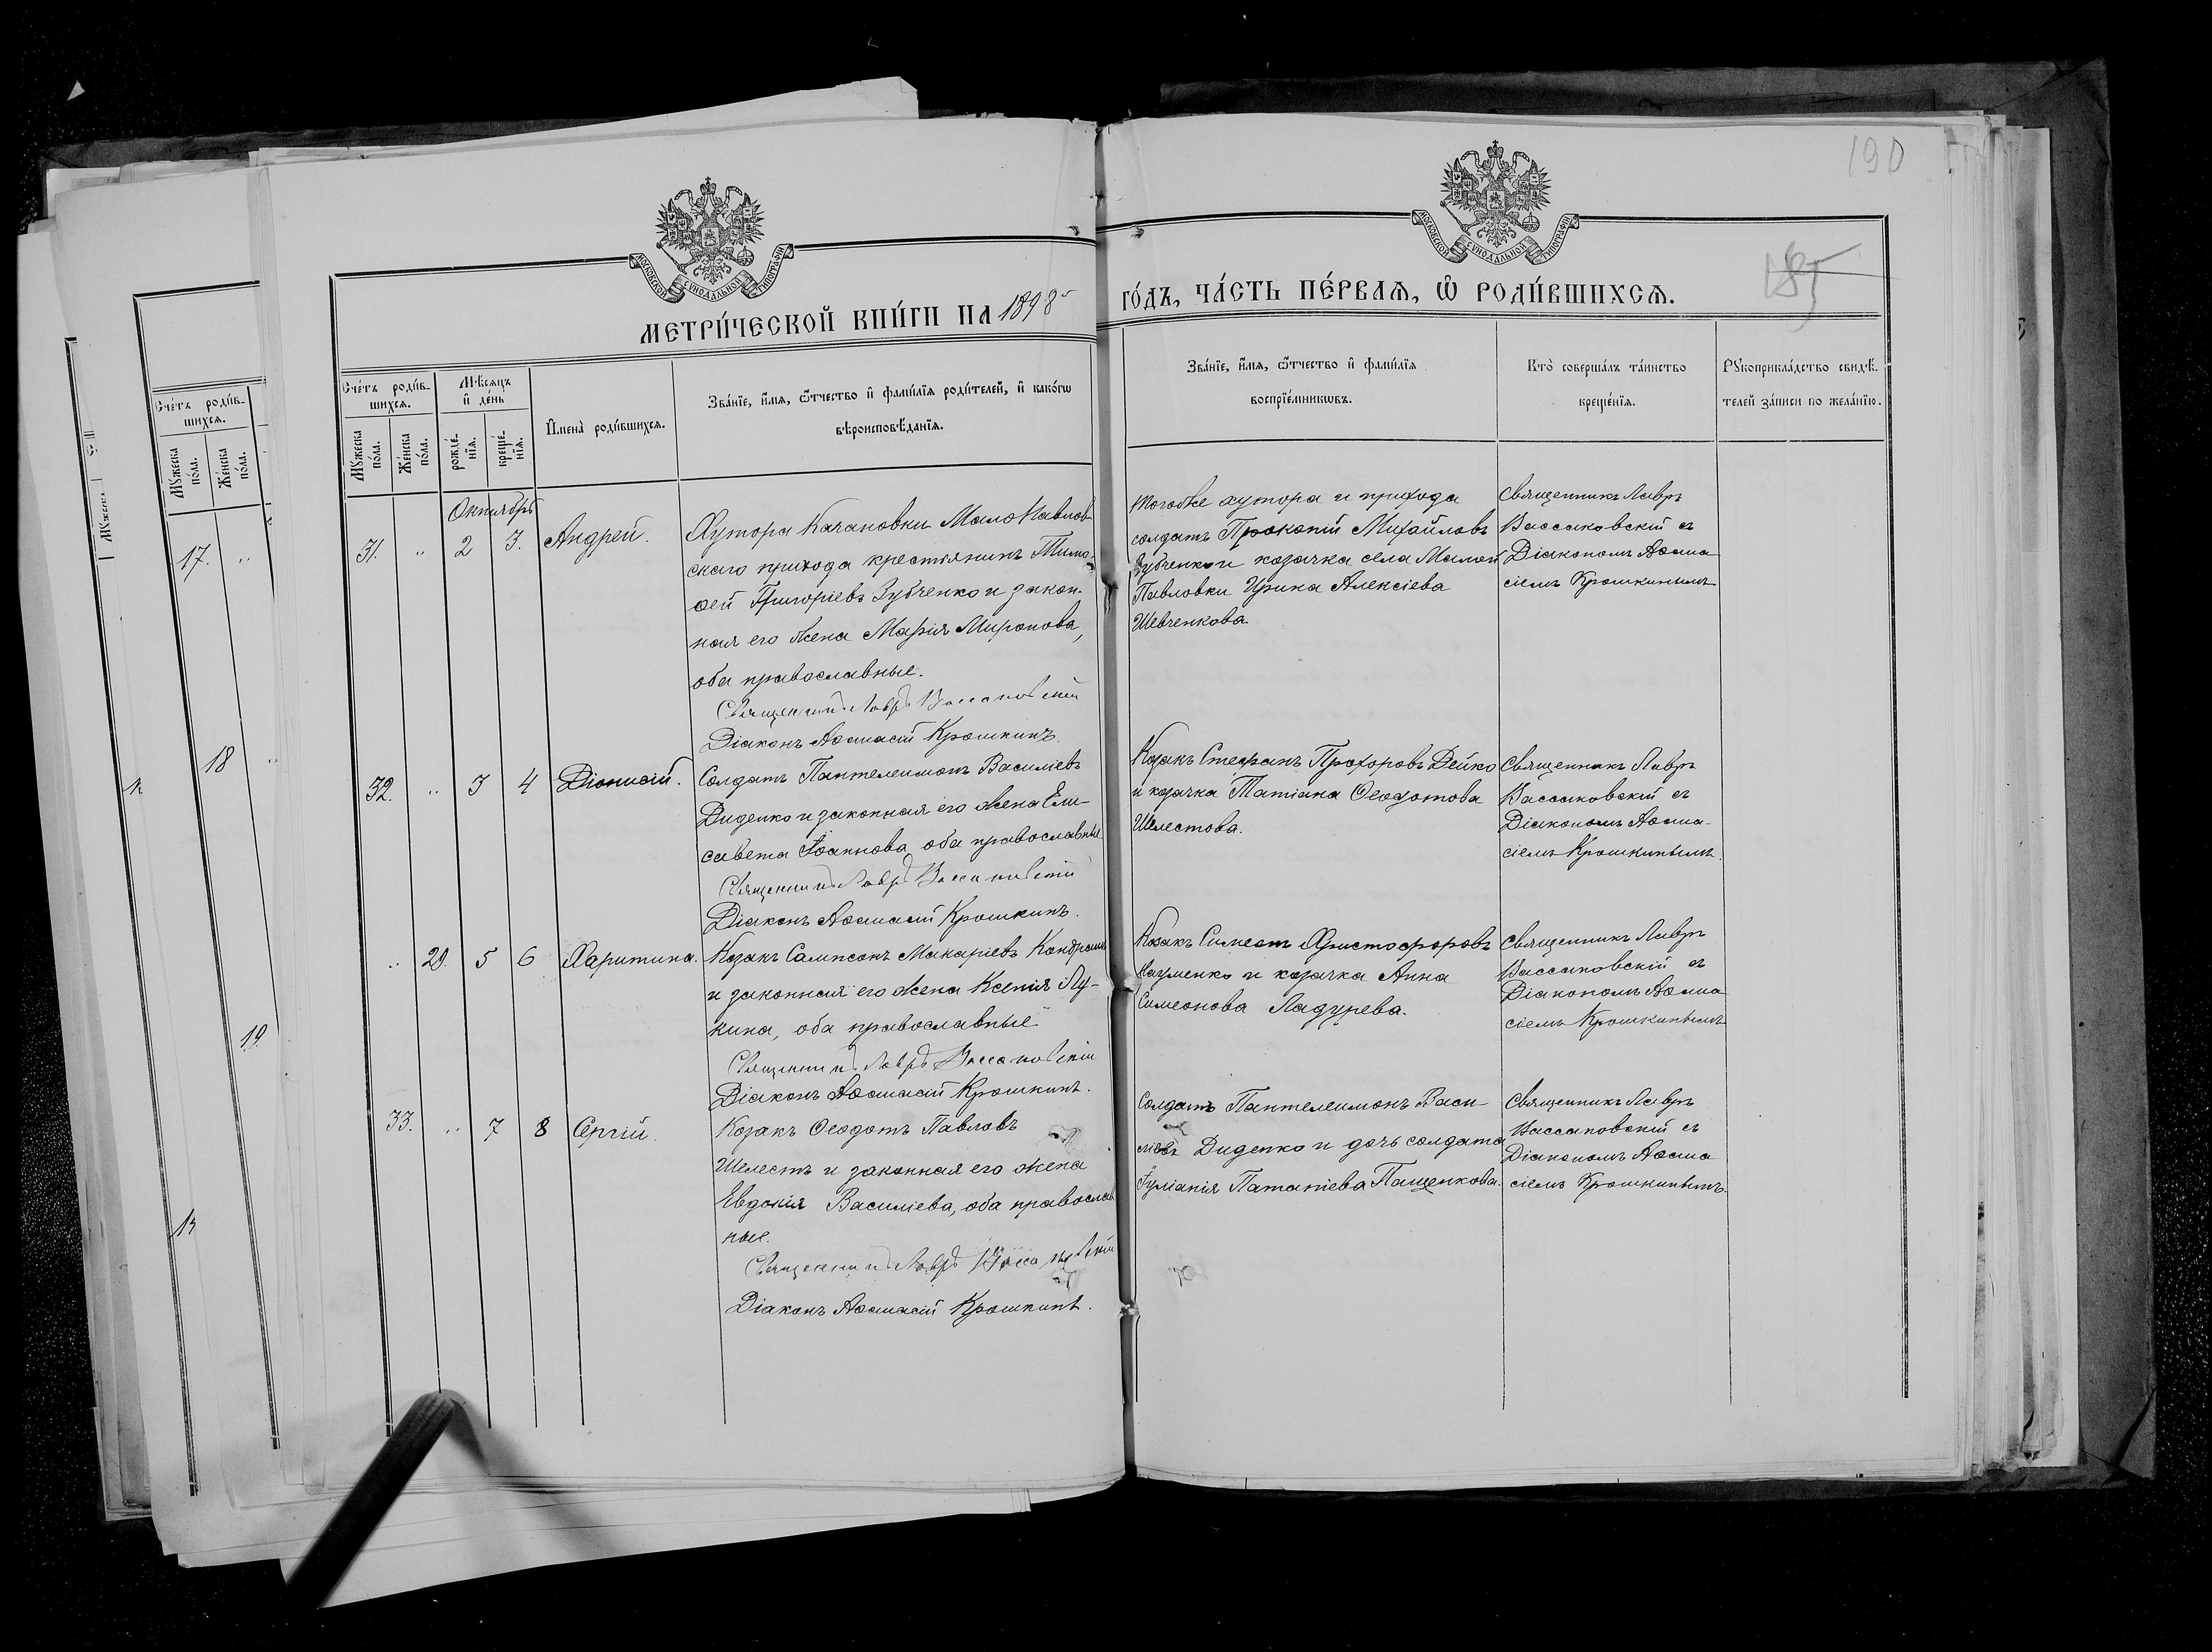 190
185
МОСКОВСКОЙ СУНОДАЛЬНОЙ ТИПОГРАФІИ
МОСКОВСКОЙ СУНОДАЛЬНОЙ ТИПОГРАФІИ
МЕТРИ́ЧЕСКОЙ КНИ́ГИ НА 1898
ГО́ДЪ, ЧА́СТЬ ПЕ́РВАѦ, Ѡ҆ РОДИ́ВШИХСѦ.
Сче́тъ роди́в-
шихсѧ.
Мꙋ́жеска
по́ла.
Же́нска
по́ла.
Мѣ́сѧцъ
и҆ де́нь
рожде́-
нїѧ.
креще́-
нїѧ.
И҆мена̀ роди́вшихсѧ.
Зва́нїе, и҆́мѧ, ѻ҆́тчество и҆ фами́лїѧ роди́телей, и҆ како́гѡ
вѣроисповѣ́данїѧ.
Зва́нїе, и҆́мѧ, ѻ҆́тчество и҆ фами́лїѧ
воспрїе́мникѡвъ.
Кто̀ соверша́лъ та́инство
креще́нїѧ.
Рꙋкоприкла́дство свидѣ́-
телей за́писи по жела́нїю.
Сче́тъ роди́в-
шихсѧ.
Мꙋ́жеска
по́ла.
Же́нска
по́ла.
17. "
18 "
19.
Октябрь
31. " 2 3. Андрей.
Хутора Качановки МалоПавлов-
скаго прихода крестьянинъ Тимо-
ѳей Григоріевъ Зубченко и закон-
ная его жена Марія Миронова,
оба православные.
Священникъ Лавръ Вассаковскій
Діаконъ Аѳанасій Крошкинъ.
тогоже хутора и прихода
солдатъ Прокопій Михайловъ
Зубченко и козачка села Малой
Павловки Ирина Алексіева
Шевченкова
Священникъ Лавръ
Вассаковскій съ
Діакономъ Аѳана
сіемъ Крошкинымъ
32. " 3 4 Діонисій.
Солдатъ Пантелеимонъ Василіевъ
Диденко и законная его жена Ели-
савета Іоаннова, оба православные
Священникъ Лавръ Вассаковскій
Діаконъ Аѳанасій Крошкинъ.
Козакъ Стефанъ Прохоровъ Дейко
и козачка Татіана Ѳеодотова
Шелестова.
Священникъ Лавръ
Вассаковскій съ
Діакономъ Аѳана-
сіемъ Крошкинымъ.
" 29. 5 6 Харитина.
Козакъ Сампсонъ Макаріевъ
и законная его жена Ксенія Лу-
кина, оба православные
Священникъ Лавръ Вассаковскій
Діаконъ Аѳанасій Крошкинъ.
Козакъ Симеонъ Христофоровъ
Науменко и козачка Анна
Симеонова Ладурева.
Священникъ Лавръ
Вассаковскій съ
Діакономъ Аѳана
сіемъ Крошкинымъ
33. " 7 8 Сергій.
Козакъ Ѳеодотъ Павловъ
Шелестъ и законная его жена
Евдокія Василіева, оба православ
ные.
Священникъ Лавръ Вассаковскій
Діаконъ Аѳанасій Крошкинъ.
Солдатъ Пантелеимонъ Васи-
ліевъ Диденко и дочь солдата
Іуліанія Пащенкова.
Священникъ Лавръ
Вассаковскій съ
Діакономъ Аѳана
сіемъ Крошкинымъ.